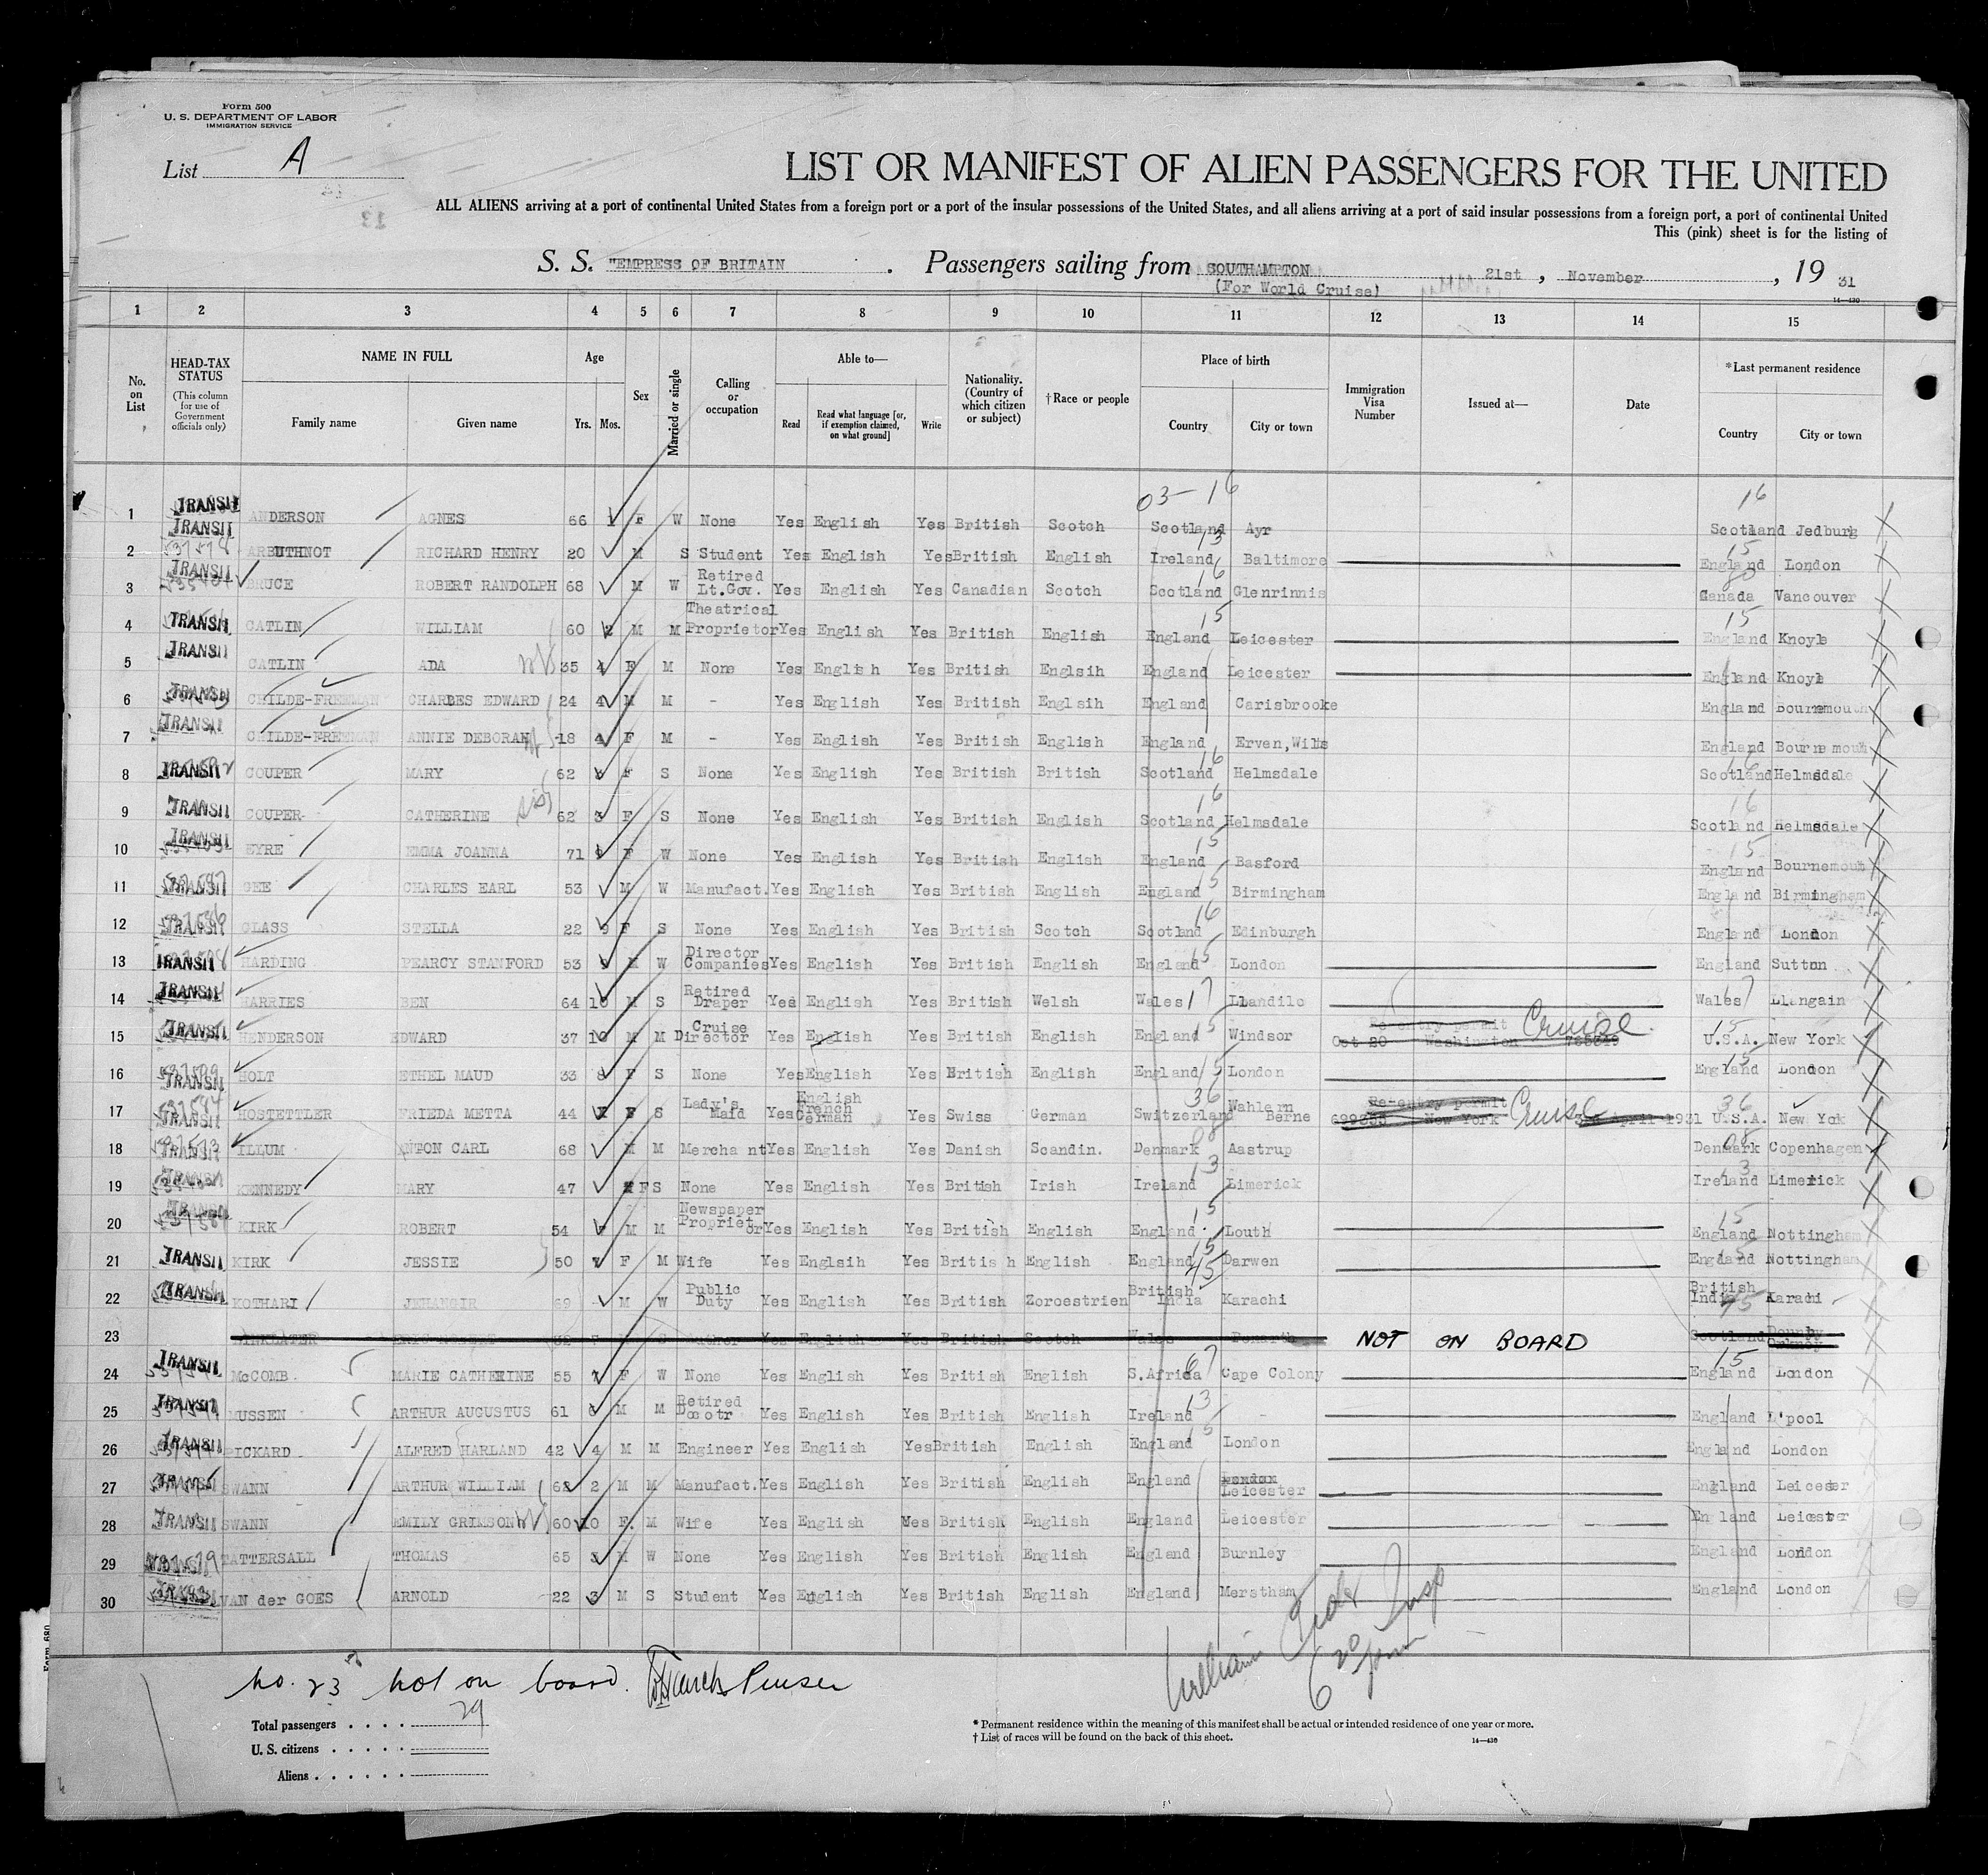 Form 500
U. S. DEPARTMENT OF LABOR
IMMIGRATION SERVICE
List A
13
LIST OR MANIFEST OF ALIEN PASSENGERS FOR THE UNITED
ALL ALIENS arriving at a port of continental United States from a foreign port or a port of the insular possessions of the United States, and all aliens arriving at a port of said insular possessions from a foreign port, a port of continental United
This (pink) sheet is for the listing of
S. S. "EMPRESS OF BRITAIN . Passengers sailing from SOUTHAMPTON 21st , November , 19 31
(For World Cruise)
14—430
1 2 3 4 5 6 7 8 9 10 11 12 13 14 15
No. on List HEAD-TAX STATUS (This column for use of Government officials only) NAME IN FULL Family name Given name Age Yrs. Mos. Sex Married or single Calling or occupation Able to— Read Read what language [or, if exemption claimed, on what ground] Write Nationality. (Country of which citizen or subject) † Race or people Place of birth Country City or town Immigration Visa Number Issued at— Date * Last permanent residence Country City or town
03-16 16
1 TRANSIT ANDERSON AGNES 66 1 F W None Yes English Yes British Scotch Scotland Ayr Scotland Jedburg
2 TRANSIT ARBUTHNOT RICHARD HENRY 20 M S Student Yes English Yes British English Ireland 13 Baltimore England 15 London
3 TRANSIT BRUCE ROBERT RANDOLPH 68 M W Retired Lt.Gov. Yes English Yes Canadian Scotch Scotland 16 Glenrinnis Canada Vancouver
4 TRANSIT CATLIN WILLIAM 60 2 M M Theatrical Proprietor Yes English Yes British English England 15 Leicester England 15 Knoyle
5 TRANSIT CATLIN ADA 35 4 F M None Yes English Yes British Englsih England Leicester England Knoyle
6 TRANSIT CHILDE-FREEMAN CHARLES EDWARD 24 4 M M - Yes English Yes British Englsih England Carisbrooke England Bournemouth
7 TRANSIT CHILDE-FREEMAN ANNIE DEBORAH 18 4 F M - Yes English Yes British English England Erven, Wilts England Bournemouth
8 TRANSIT COUPER MARY 62 F S None Yes English Yes British British Scotland 16 Helmsdale Scotland 16 Helmsdale
9 TRANSIT COUPER CATHERINE 62 3 F S None Yes English Yes British English Scotland 16 Helmsdale Scotland 16 Helmsdale
10 TRANSIT EYRE EMMA JOANNA 71 9 F W None Yes English Yes British English England 15 Basford England 15 Bournemouth
11 TRANSIT GEE CHARLES EARL 53 M W Manufact. Yes English Yes British English England 15 Birmingham England Birmingham
12 TRANSIT GLASS STELLA 22 9 F S None Yes English Yes British Scotch Scotland 16 Edinburgh England London
13 TRANSIT HARDING PEARCY STANFORD 53 9 M W Director Companies Yes English Yes British English England 15 London England Sutton
14 TRANSIT HARRIES BEN 64 10 M S Retired Draper Yes English Yes British Welsh Wales 17 Llandilo Wales 17 Llangain
15 TRANSIT HENDERSON EDWARD 37 10 M M Cruise Director Yes English Yes British English England 15 Windsor Re-entry permit Cruise Oct 20 Washington U.S.A. 15 New York
16 TRANSIT HOLT ETHEL MAUD 33 8 F S None Yes English Yes British English England 15 London England 15 London
17 TRANSIT HOSTETTLER FRIEDA METTA 44 F S Lady's Maid Yes English French German Yes Swiss German Switzerland 36 Wahlern Berne Re-entry permit New York Cruise April 1931 U.S.A. 36 New York
18 TRANSIT ILLUM ANTON CARL 68 M M Merchant Yes English Yes Danish Scandin. Denmark 08 Aastrup Denmark 08 Copenhagen
19 TRANSIT KENNEDY MARY 47 F S None Yes English Yes British Irish Ireland 13 Limerick Ireland 13 Limerick
20 TRANSIT KIRK ROBERT 54 M M Newspaper Proprietor Yes English Yes British English England 15 Louth England 15 Nottingham
21 TRANSIT KIRK JESSIE 50 F M Wife Yes Englsih Yes British English England 15 Darwen England 15 Nottingham
22 TRANSIT KOTHARI JEHANGIR 69 - M W Public Duty Yes English Yes British Zoroestrien British India 45 Karachi British India 45 Karachi
23 NOT ON BOARD Scotland
24 TRANSIT McCOMB MARIE CATHERINE 55 7 F W None Yes English Yes British English S.Africa 67 Cape Colony England 15 London
25 TRANSIT MUSSEN ARTHUR AUGUSTUS 61 6 M M Retired Docotr Yes English Yes British English Ireland 13 - England L'pool
26 TRANSIT PICKARD ALFRED HARLAND 42 4 M M Engineer Yes English Yes British English England 15 London England London
27 TRANSIT SWANN ARTHUR WILLIAM 62 2 M M Manufact. Yes English Yes British English England Leicester England Leicester
28 TRANSIT SWANN EMILY GRIMSON 60 10 F. M Wife Yes English Yes British English England Leicester England Leicester
29 TATTERSALL THOMAS 65 3 M W None Yes English Yes British English England Burnley England London
30 TRANSIT VAN der GOES ARNOLD 22 3 M S Student Yes English Yes British English England Merstham England London
no. 23 not on board. Purser
William Insp
6 20 pm
Total passengers . . . . 29
U. S. citizens . . . . .
Aliens . . . . . .
* Permanent residence within the meaning of this manifest shall be actual or intended residence of one year or more.
† List of races will be found on the back of this sheet.
14—430
Form 680